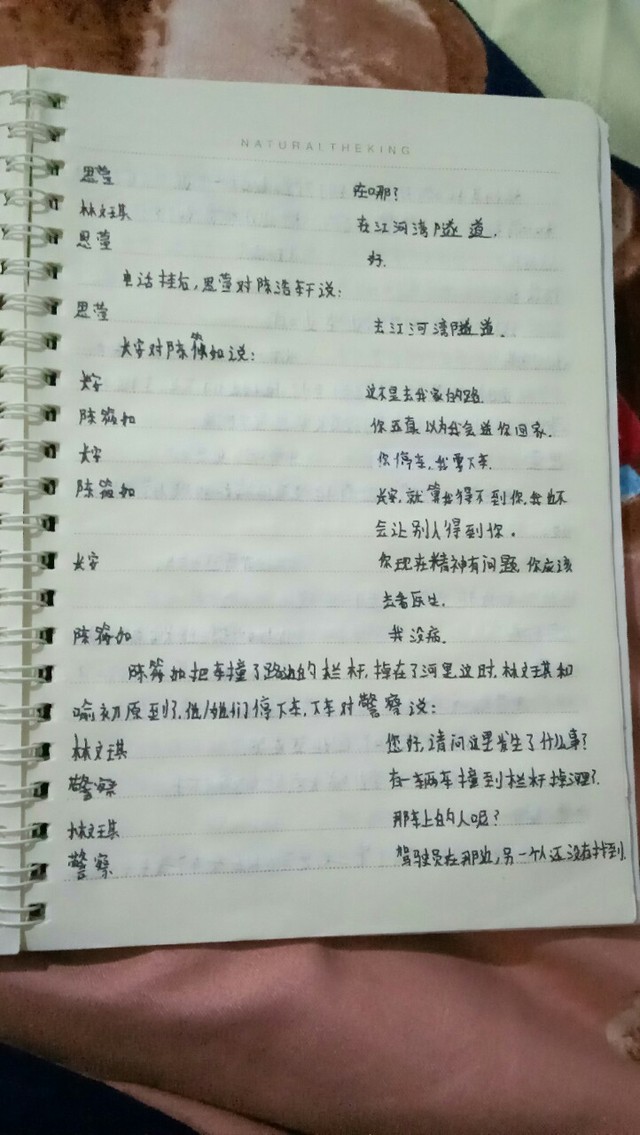 NATURALTHEKING
思莹 在哪?
林文琪 在江河湾隧道.
思莹 好.
电话挂后,思莹对陈浩轩说:
思莹 去江河湾隧道.
长安对陈筱如说:
长安 这不是去我家的路.
陈筱如 你还真以为我会送你回家.
长安 你停车,我要下车.
陈筱如 长安,就算我得不到你,我也不
会让别人得到你.
长安 你现在精神有问题,你应该
去看医生.
陈筱如 我没病.
陈筱如把车撞了路边的栏杆,掉在了河里这时,林文琪和
喻初原到了,他/她们停下车,下车对警察说:
林文琪 您好,请问这里发生了什么事?
警察 有一辆车撞到栏杆掉河里了.
林文琪 那车上的人呢?
警察 驾驶员在那边,另一个人还没有找到.